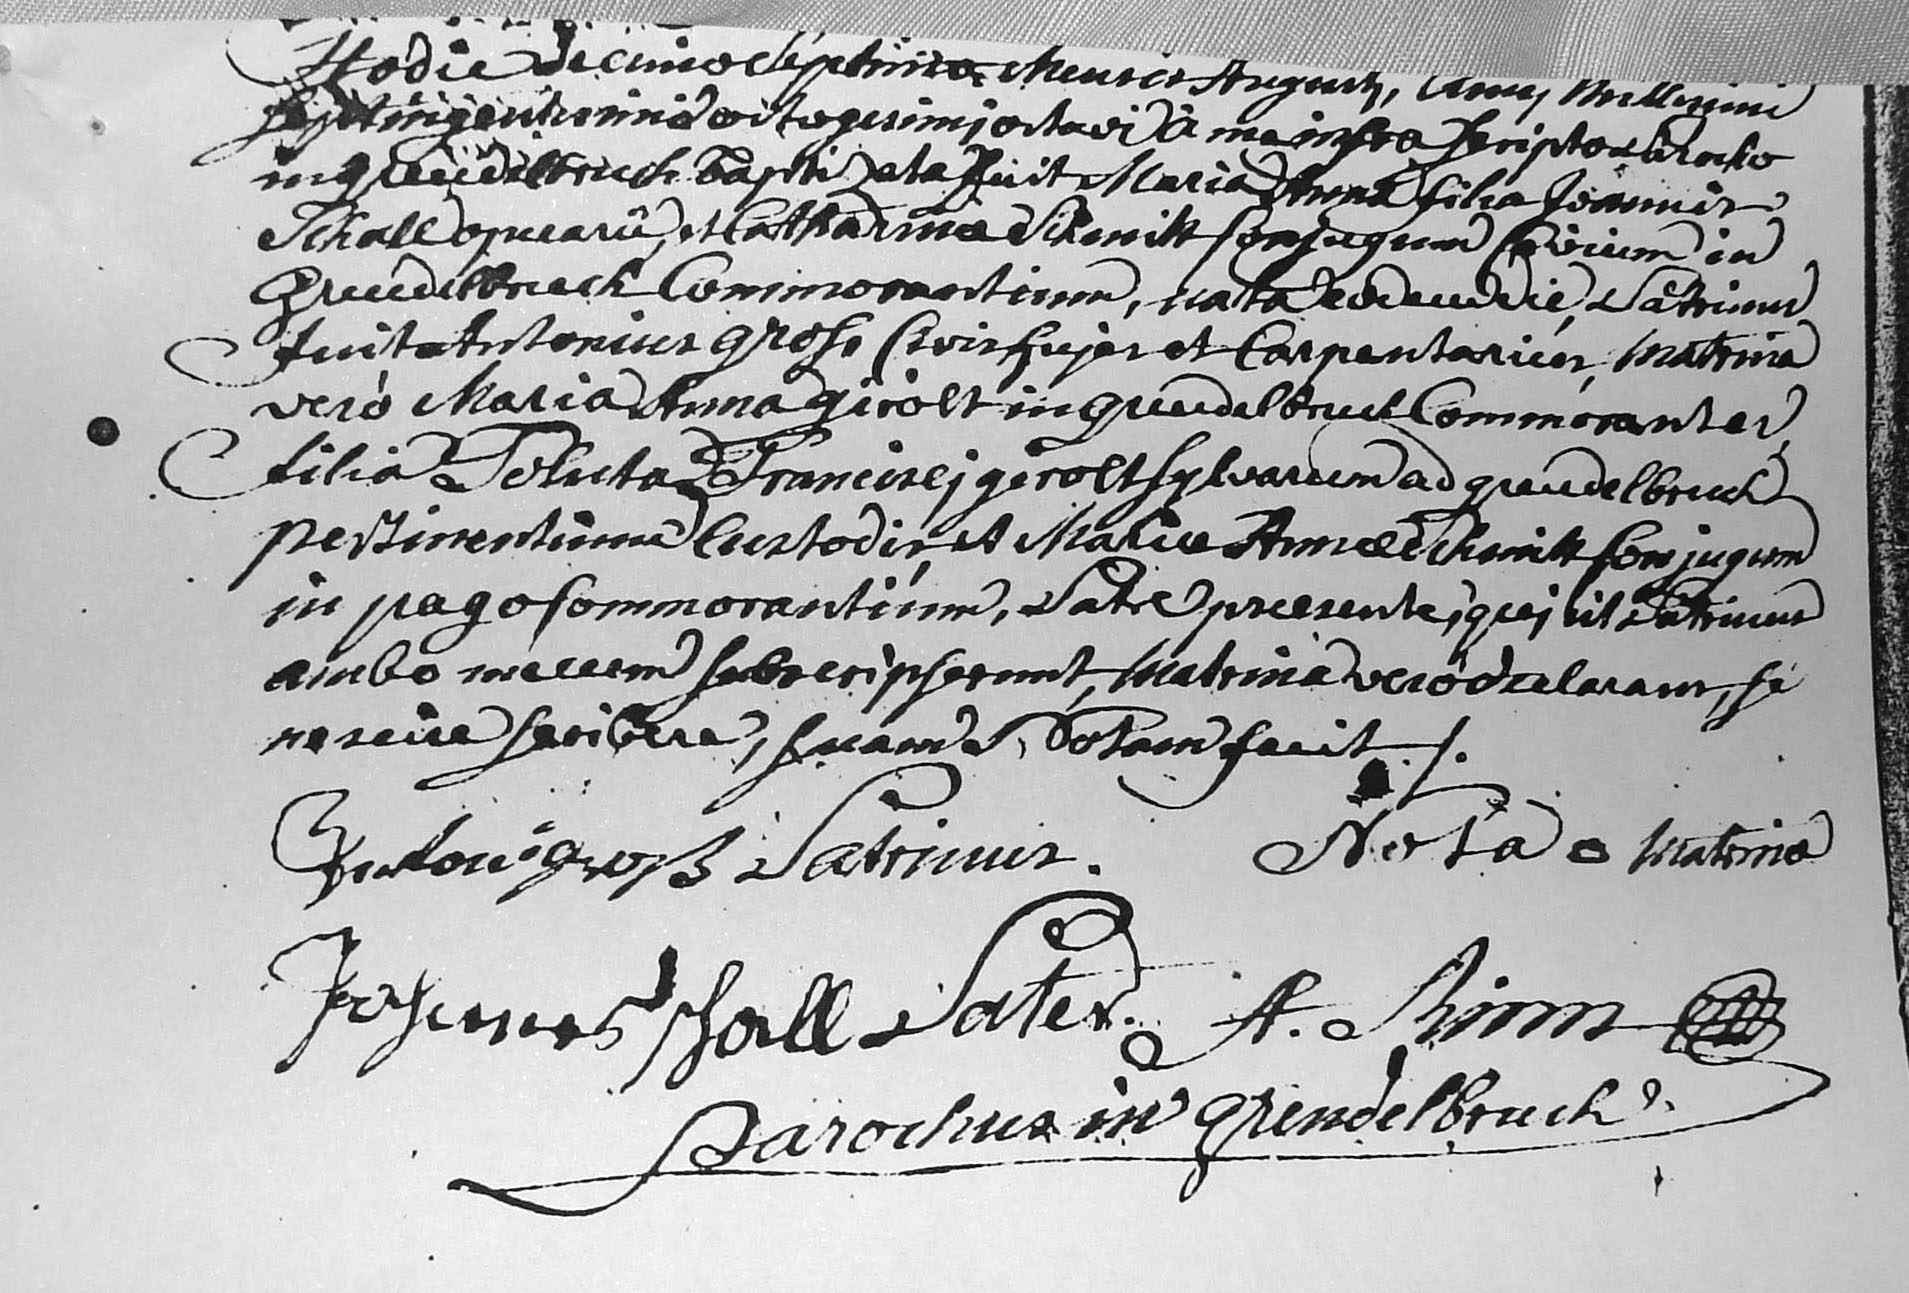 Hodie decimo septimo Mensis Augusti, Anni Millesimi
septingentesimi octogesimi octavi à me infra scripto parocho
in grendelbruch baptizata fuit Maria Anna filia Joannis
Schall operarii, et Catharinae Schmitt conjugum Civium in
Grendelbruch Commorantium, nata eodem die, Patrinus
fuit Antonius gross Civis hujas et Carpentarius, Matrina
verò Maria Anna girolt in grendelbruch Commorantes,
filia Soluta Francisci girolt sylvarum ad grendelbruch
pertinentium Custodis, et Mariae Annae Schmitt Conjugum
in pago Commorantium, Patre praesente, qui ut Patrinus
ambo mecum subscripserunt, Matrina verò declarans, se
nescire scribere, suam Notam fecit ./.
Antoni groß Patrinus. Nota o Matrina
Johannes schall Pater. A. Rimm
Parochus in grendelbruch